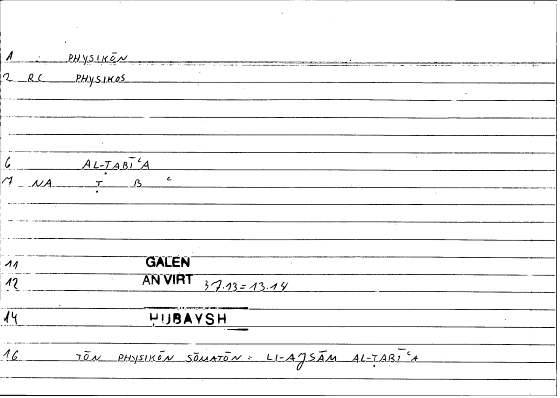 1 . PHYSIKŌN
2 RC PHYSIKOS
6 AL-ṬABĪʿA
7 NA Ṭ B ʿ
11 GALEN
12 AN VIRT 37.13 = 13.14
14 ḤUBAYSH
16 TŌN PHYSIKŌN SŌMATŌN = LI-AJSĀM AL-ṬABĪʿA